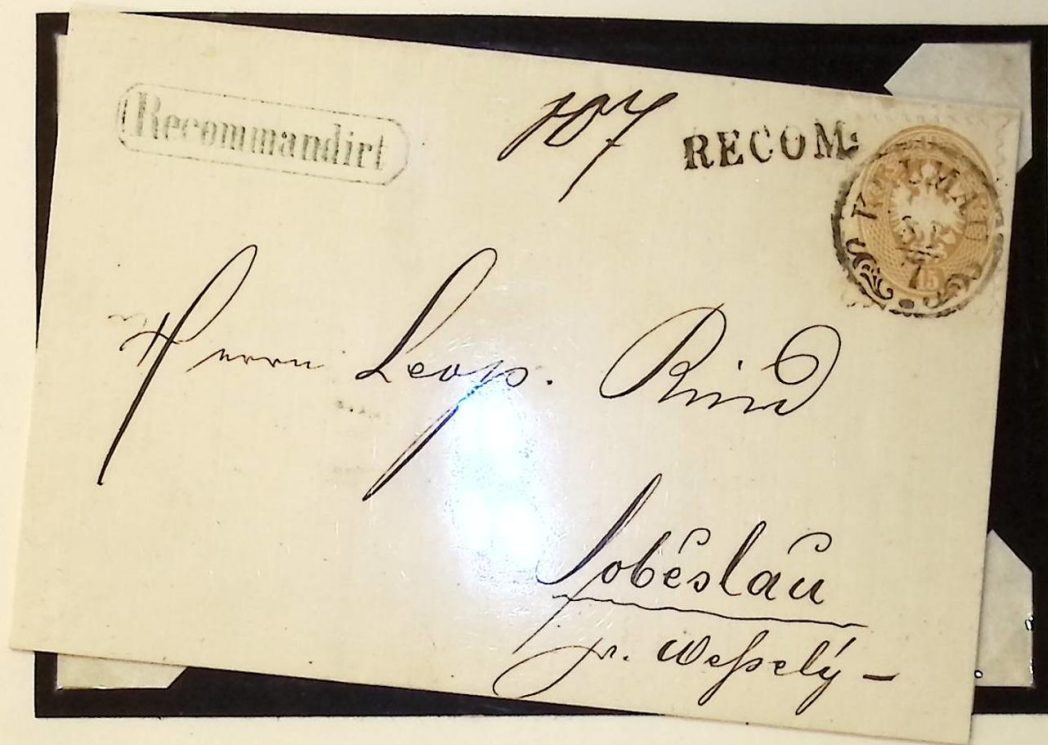 Recommandirt
107
RECOM:
KALMAU
7
15
Herrn Leop. Rind
Sobéslau
pr. Weßelÿ –